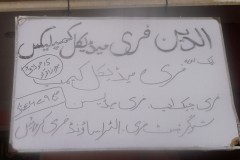 الدین فری میڈیکل کمپلیکس
فری میڈیکل کیمپ
فری چیک اپ فری میڈیسن
شوگر ٹیسٹ فری الٹراساؤنڈ فری